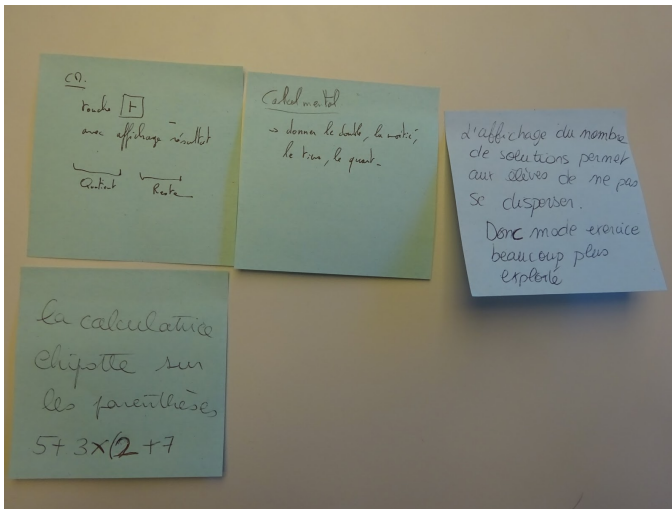 touche [F]
avec affichage résultat
Quotient Reste
Calcul mental
→ donner le double, la moitié,
le tiers, le quart.
L'affichage du nombre
de solutions permet
aux élèves de ne pas
se disperser.
Donc mode exercice
beaucoup plus
exploité
la calculatrice
chipotte sur
les parenthèses
5+3×(2+7